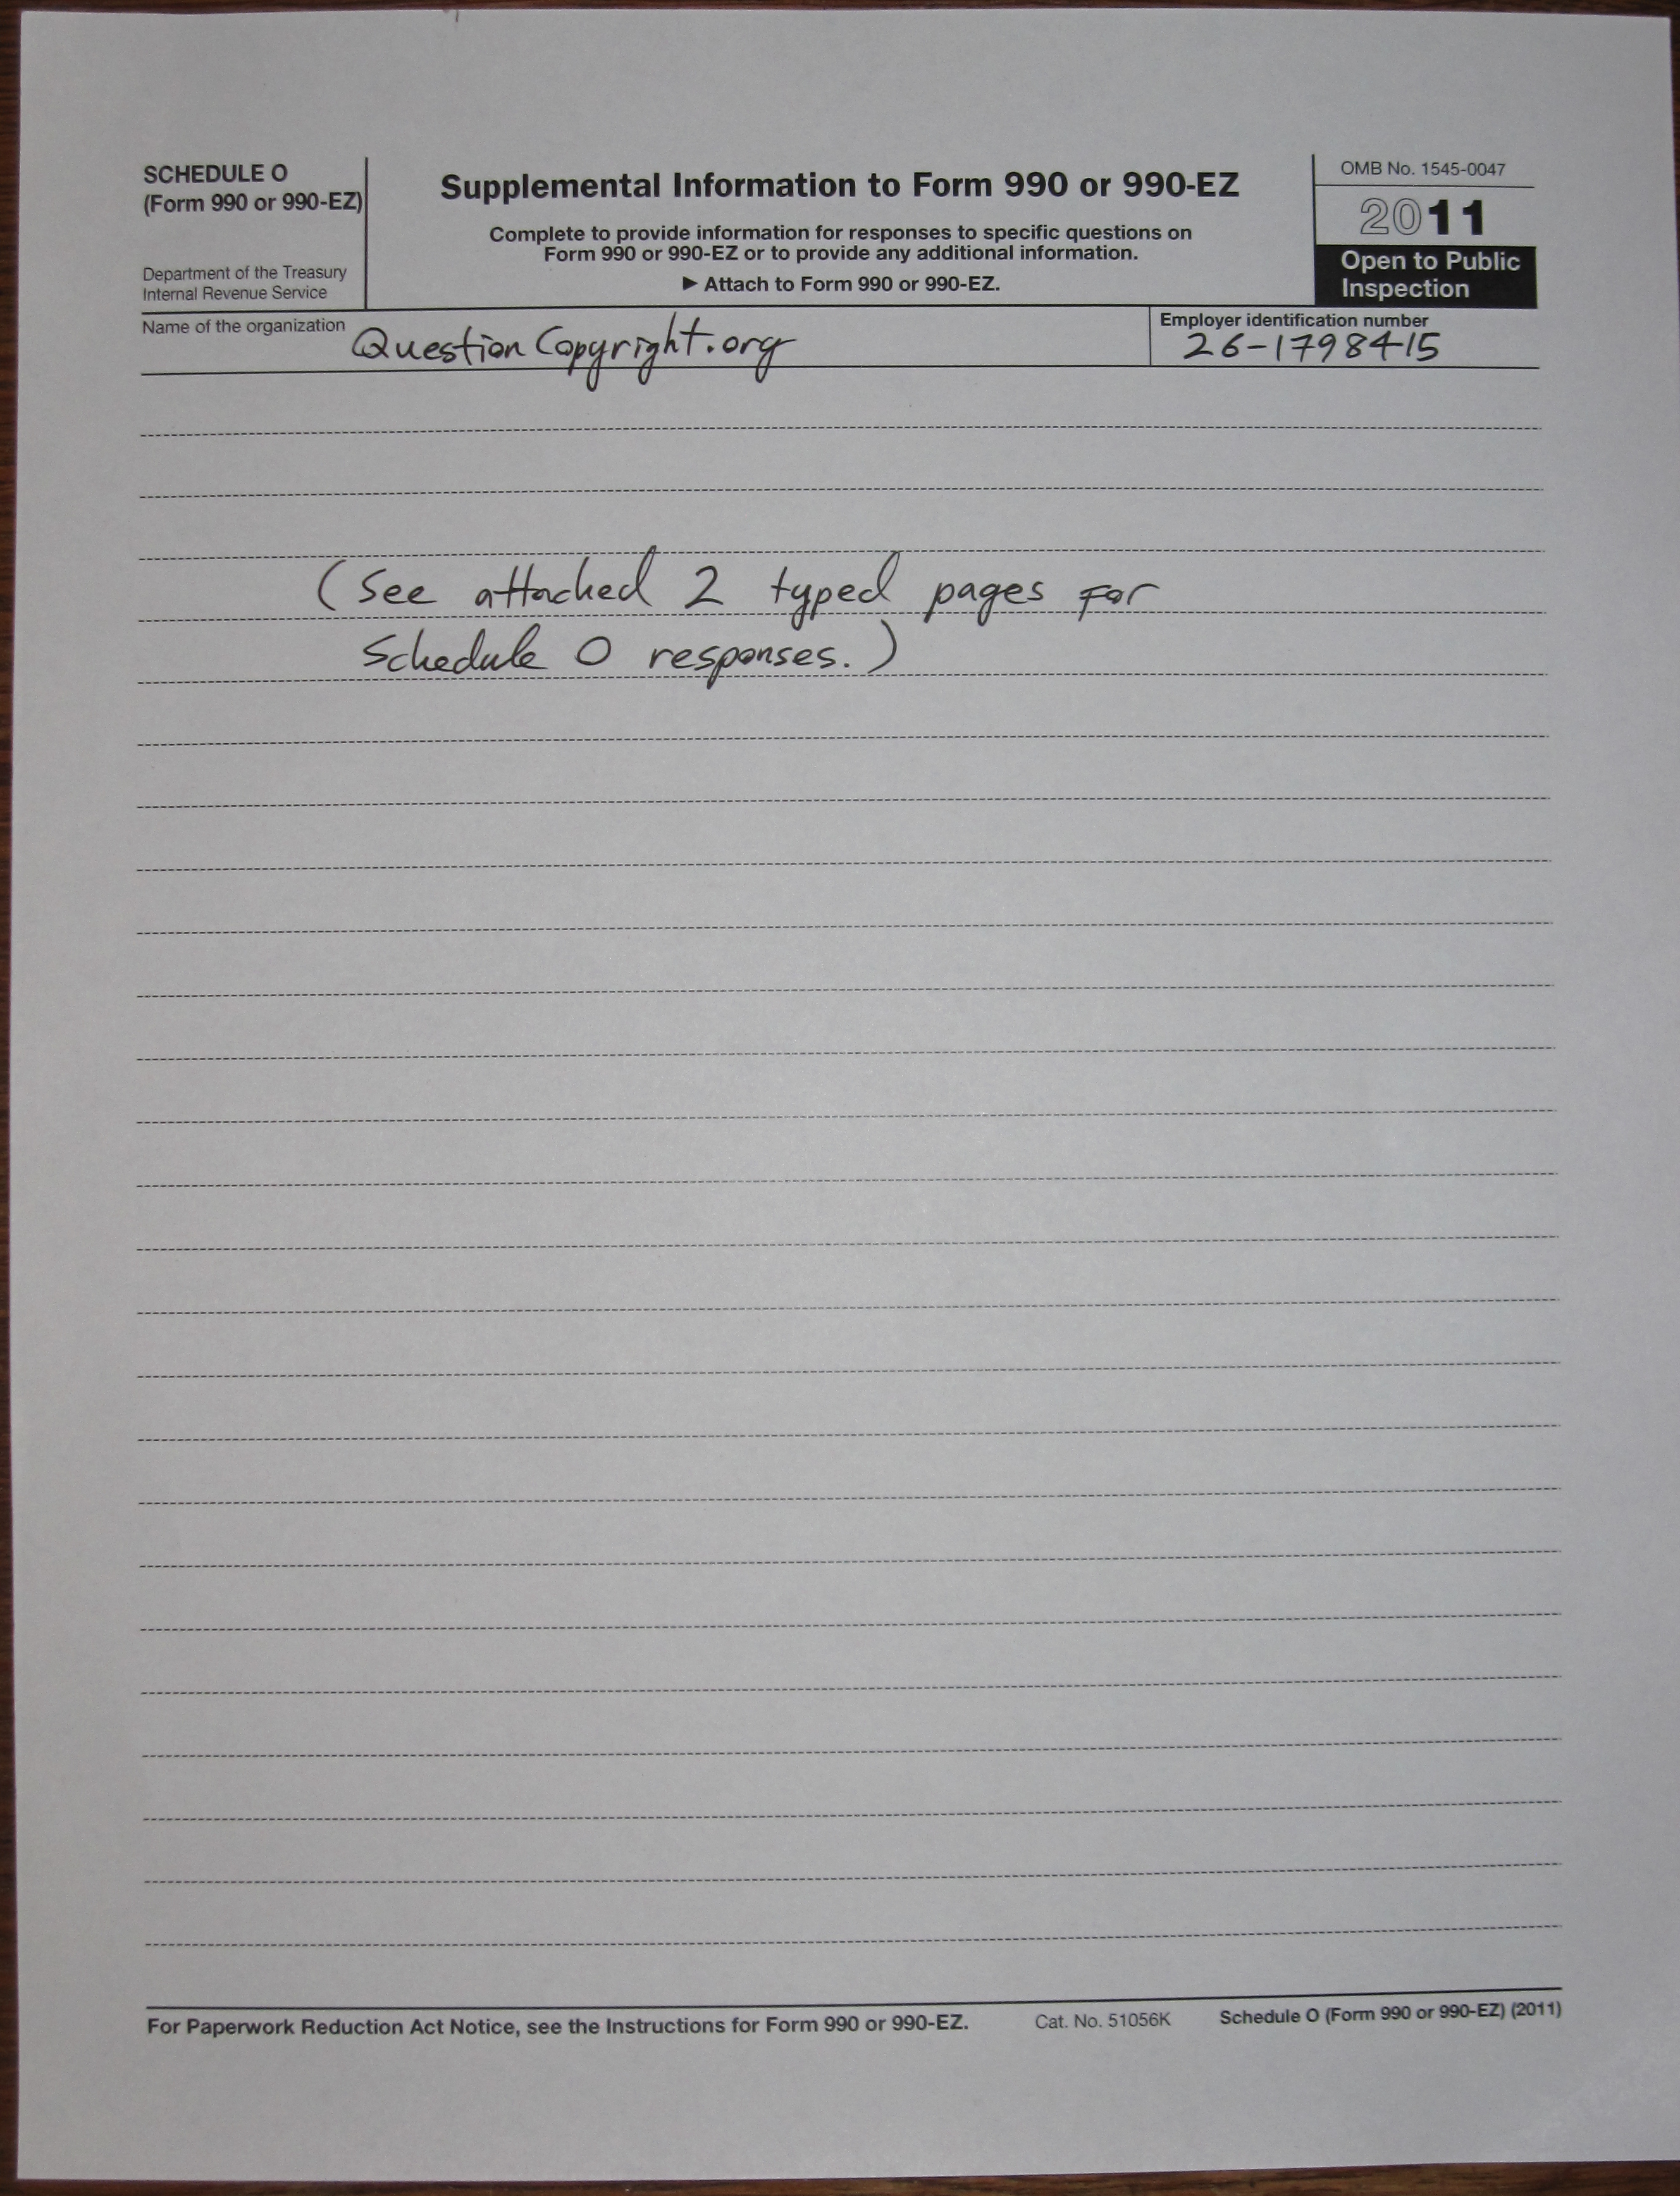 SCHEDULE O
(Form 990 or 990-EZ)
Department of the Treasury
Internal Revenue Service
Supplemental Information to Form 990 or 990-EZ
Complete to provide information for responses to specific questions on
Form 990 or 990-EZ or to provide any additional information.
▶ Attach to Form 990 or 990-EZ.
OMB No. 1545-0047
2011
Open to Public
Inspection
Name of the organization
QuestionCopyright.org
Employer identification number
26-1798415
(See attached 2 typed pages for
Schedule O responses.)
For Paperwork Reduction Act Notice, see the Instructions for Form 990 or 990-EZ.
Cat. No. 51056K
Schedule O (Form 990 or 990-EZ) (2011)